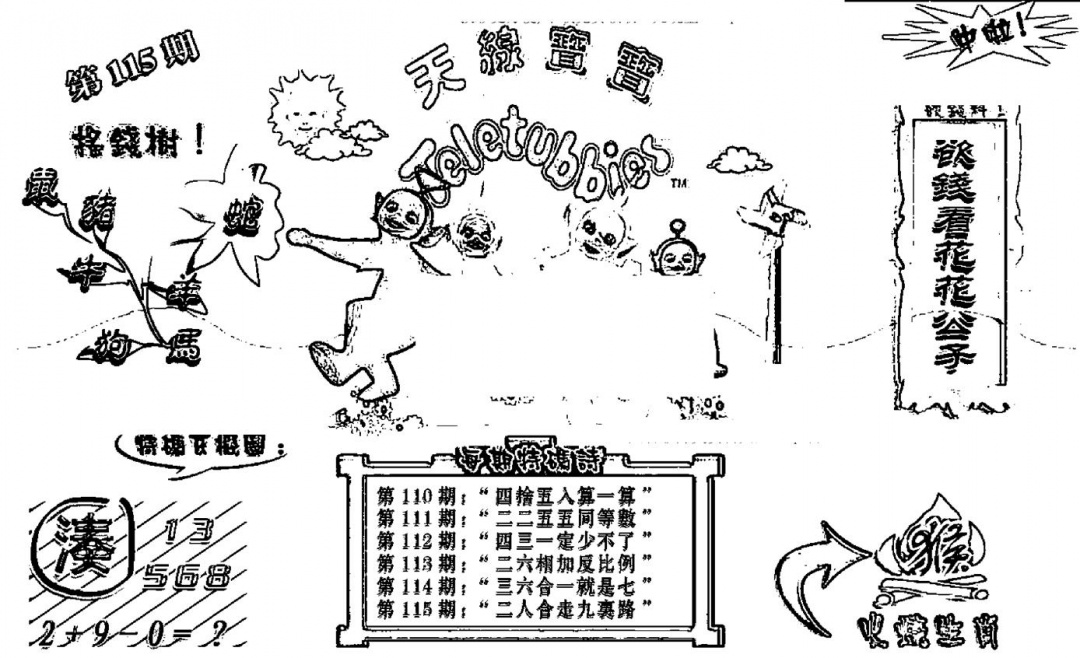 第115期
天線寶寶
Teletubbies
TM
搖錢樹！
鼠
豬
蛇
牛
羊
狗
馬
欲錢料！
欲錢看花花公子
每期特碼詩
第110期："四捨五入算一算"
第111期："二二五五同等數"
第112期："四三一定少不了"
第113期："二六相加反比例"
第114期："三六合一就是七"
第115期："二人合走九裏路"
湊
13
568
2+9-0=?
猴
火燒生肖